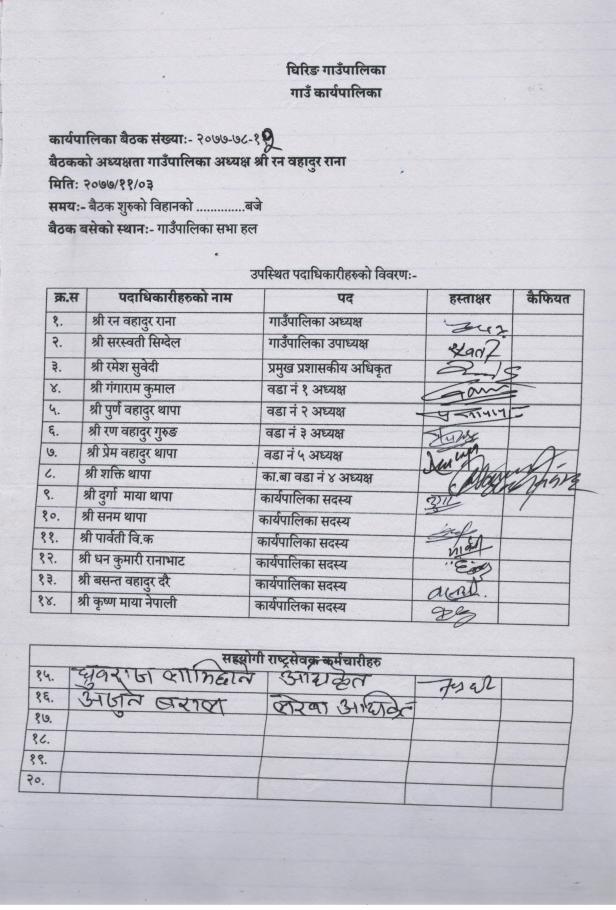 घिरिङ गाउँपालिका
गाउँ कार्यपालिका
कार्यपालिका बैठक संख्याः- २०७७-७८-१
बैठकको अध्यक्षता गाउँपालिका अध्यक्ष श्री रन वहादुर राना
मितिः २०७७/११/०३
समयः- बैठक शुरुको विहानको ..............बजे
बैठक बसेको स्थानः- गाउँपालिका सभा हल
उपस्थित पदाधिकारीहरुको विवरणः-
क्र.स पदाधिकारीहरुको नाम पद हस्ताक्षर कैफियत
१. श्री रन वहादुर राना गाउँपालिका अध्यक्ष
२. श्री सरस्वती सिग्देल गाउँपालिका उपाध्यक्ष
३. श्री रमेश सुवेदी प्रमुख प्रशासकीय अधिकृत
४. श्री गंगाराम कुमाल वडा नं १ अध्यक्ष
५. श्री पुर्ण वहादुर थापा वडा नं २ अध्यक्ष
६. श्री रण वहादुर गुरुङ वडा नं ३ अध्यक्ष
७. श्री प्रेम वहादुर थापा वडा नं ५ अध्यक्ष
८. श्री शक्ति थापा का.बा वडा नं ४ अध्यक्ष
९. श्री दुर्गा माया थापा कार्यपालिका सदस्य
१०. श्री सनम थापा कार्यपालिका सदस्य
११. श्री पार्वती वि.क कार्यपालिका सदस्य
१२. श्री धन कुमारी रानाभाट कार्यपालिका सदस्य
१३. श्री बसन्त वहादुर दरै कार्यपालिका सदस्य
१४. श्री कृष्ण माया नेपाली कार्यपालिका सदस्य
सहयोगी राष्ट्रसेवक कर्मचारीहरु
१५. ध्रुवराज लामिछाने अधिकृत
१६. अर्जुन बराल लेखा
१७.
१८.
१९.
२०.